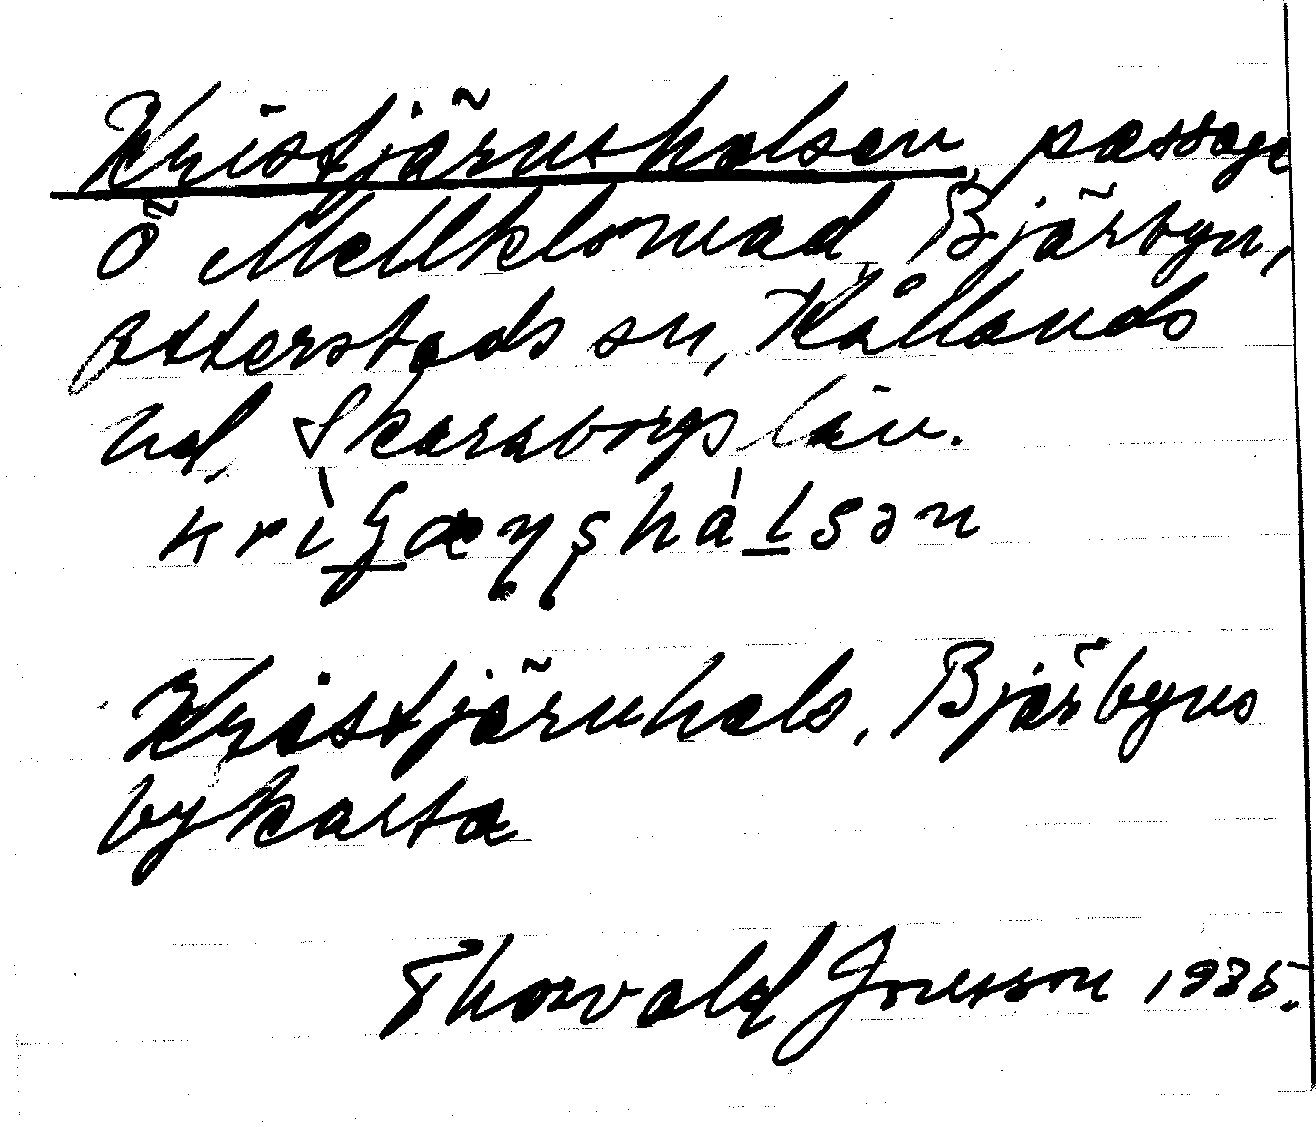 Kristjärnshalsen, passage
Ö Mellklovad, Bjärbyn,
Otterstads sn, Kållands
hd, Skaraborgs län.
Kristjärnhals, Bjärbyns
bykarta
Thorvald Jonsson 1935.